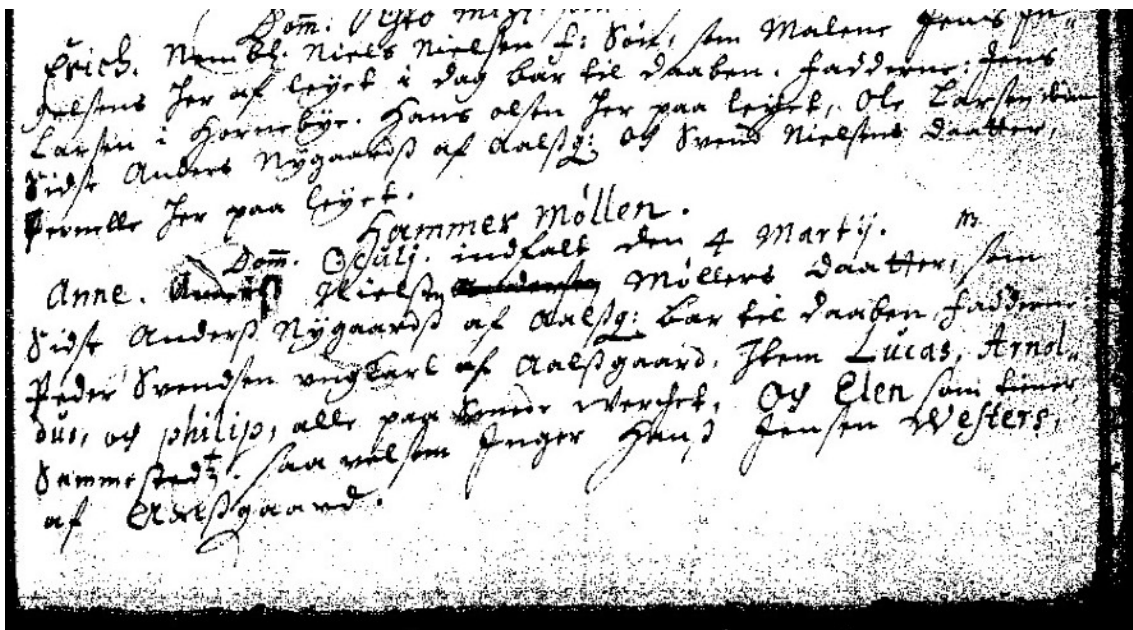 Dom̅. Esto mihi.
Erich. Nembl. Niels Nielsen f: Søn, som Malene Jens In-
gelsens her af leyet i dag bar til daaben. Fadderne. Jens
Larsen i Hornebye. Hans olsen her paa leyet, Ole Larsen
Sidse Anders Nygaardß af Aalßg: Og Svend Nielsens daatter,
Pernelle her paa leyet.
Hammer Møllen.
Dom̅. Oculj. indfalt den 4 Martij.
Anne. Anderß Nielsen Møllers daatter, som
Sidse Anderß Nygaardß af Aalßg: bar til daaben, fadderne
Peder Svendsen vngkarl af Aalßgaard, Item Lucas, Arnol-
dus, og philip, alle paa werchet, Og Elen som tiener
Sammested. saa velsom Inger Hanß Jensen Westers,
af Aalßgaard.